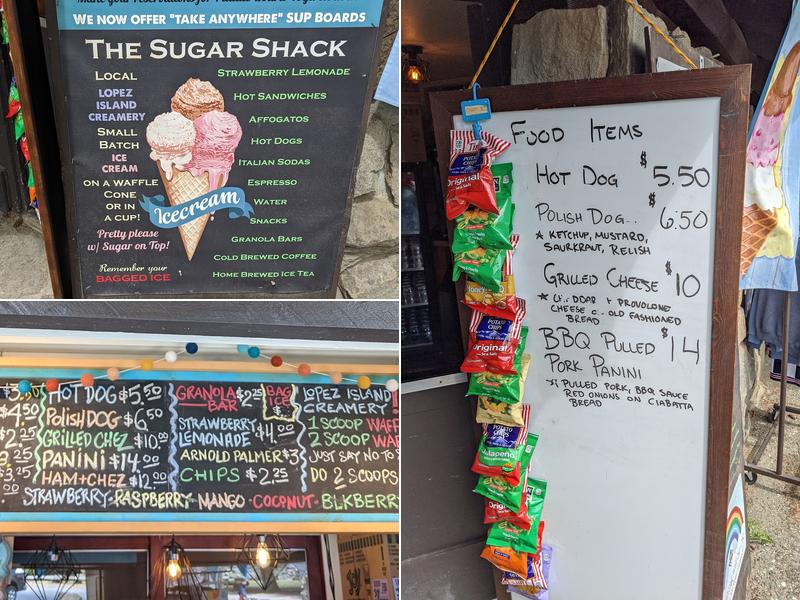 WE NOW OFFER "TAKE ANYWHERE" SUP BOARDS
THE SUGAR SHACK
LOCAL
LOPEZ
ISLAND
CREAMERY
SMALL
BATCH
ICE
CREAM
ON A WAFFLE
CONE
OR IN
A CUP!
Pretty please
w/ Sugar on Top!
Remember your
BAGGED ICE
Icecream
STRAWBERRY LEMONADE
HOT SANDWICHES
AFFOGATOS
HOT DOGS
ITALIAN SODAS
ESPRESSO
WATER
SNACKS
GRANOLA BARS
COLD BREWED COFFEE
HOME BREWED ICE TEA
FOOD ITEMS
HOT DOG $5.50
POLISH DOG.. $6.50
★ KETCHUP, MUSTARD,
SAURKRAUT, RELISH
GRILLED CHEESE $10
+ PROVOLONE
CHEESE OLD FASHIONED
BREAD
BBQ PULLED $14
PORK PANINI
PULLED PORK, BBQ SAUCE
RED ONIONS ON CIABATTA
BREAD
POTATO CHIPS
Original
Honey
POTATO CHIPS
Original
POTATO CHIPS
Jalapeño
$4.50
$2.25
$3.25
HOT DOG $5.50
POLISH DOG $6.50
GRILLED CHEZ $10.00
PANINI $14.00
HAM+CHEZ $12.00
GRANOLA BAR $2.25
STRAWBERRY LEMONADE $4.00
ARNOLD PALMER $3
CHIPS $2.25
BAG ICE
LOPEZ ISLAND
CREAMERY
1 SCOOP WAFF
2 SCOOP WAF
JUST SAY NO TO
DO 2 SCOOPS
STRAWBERRY·RASPBERRY·MANGO·COCONUT·BLKBERRY